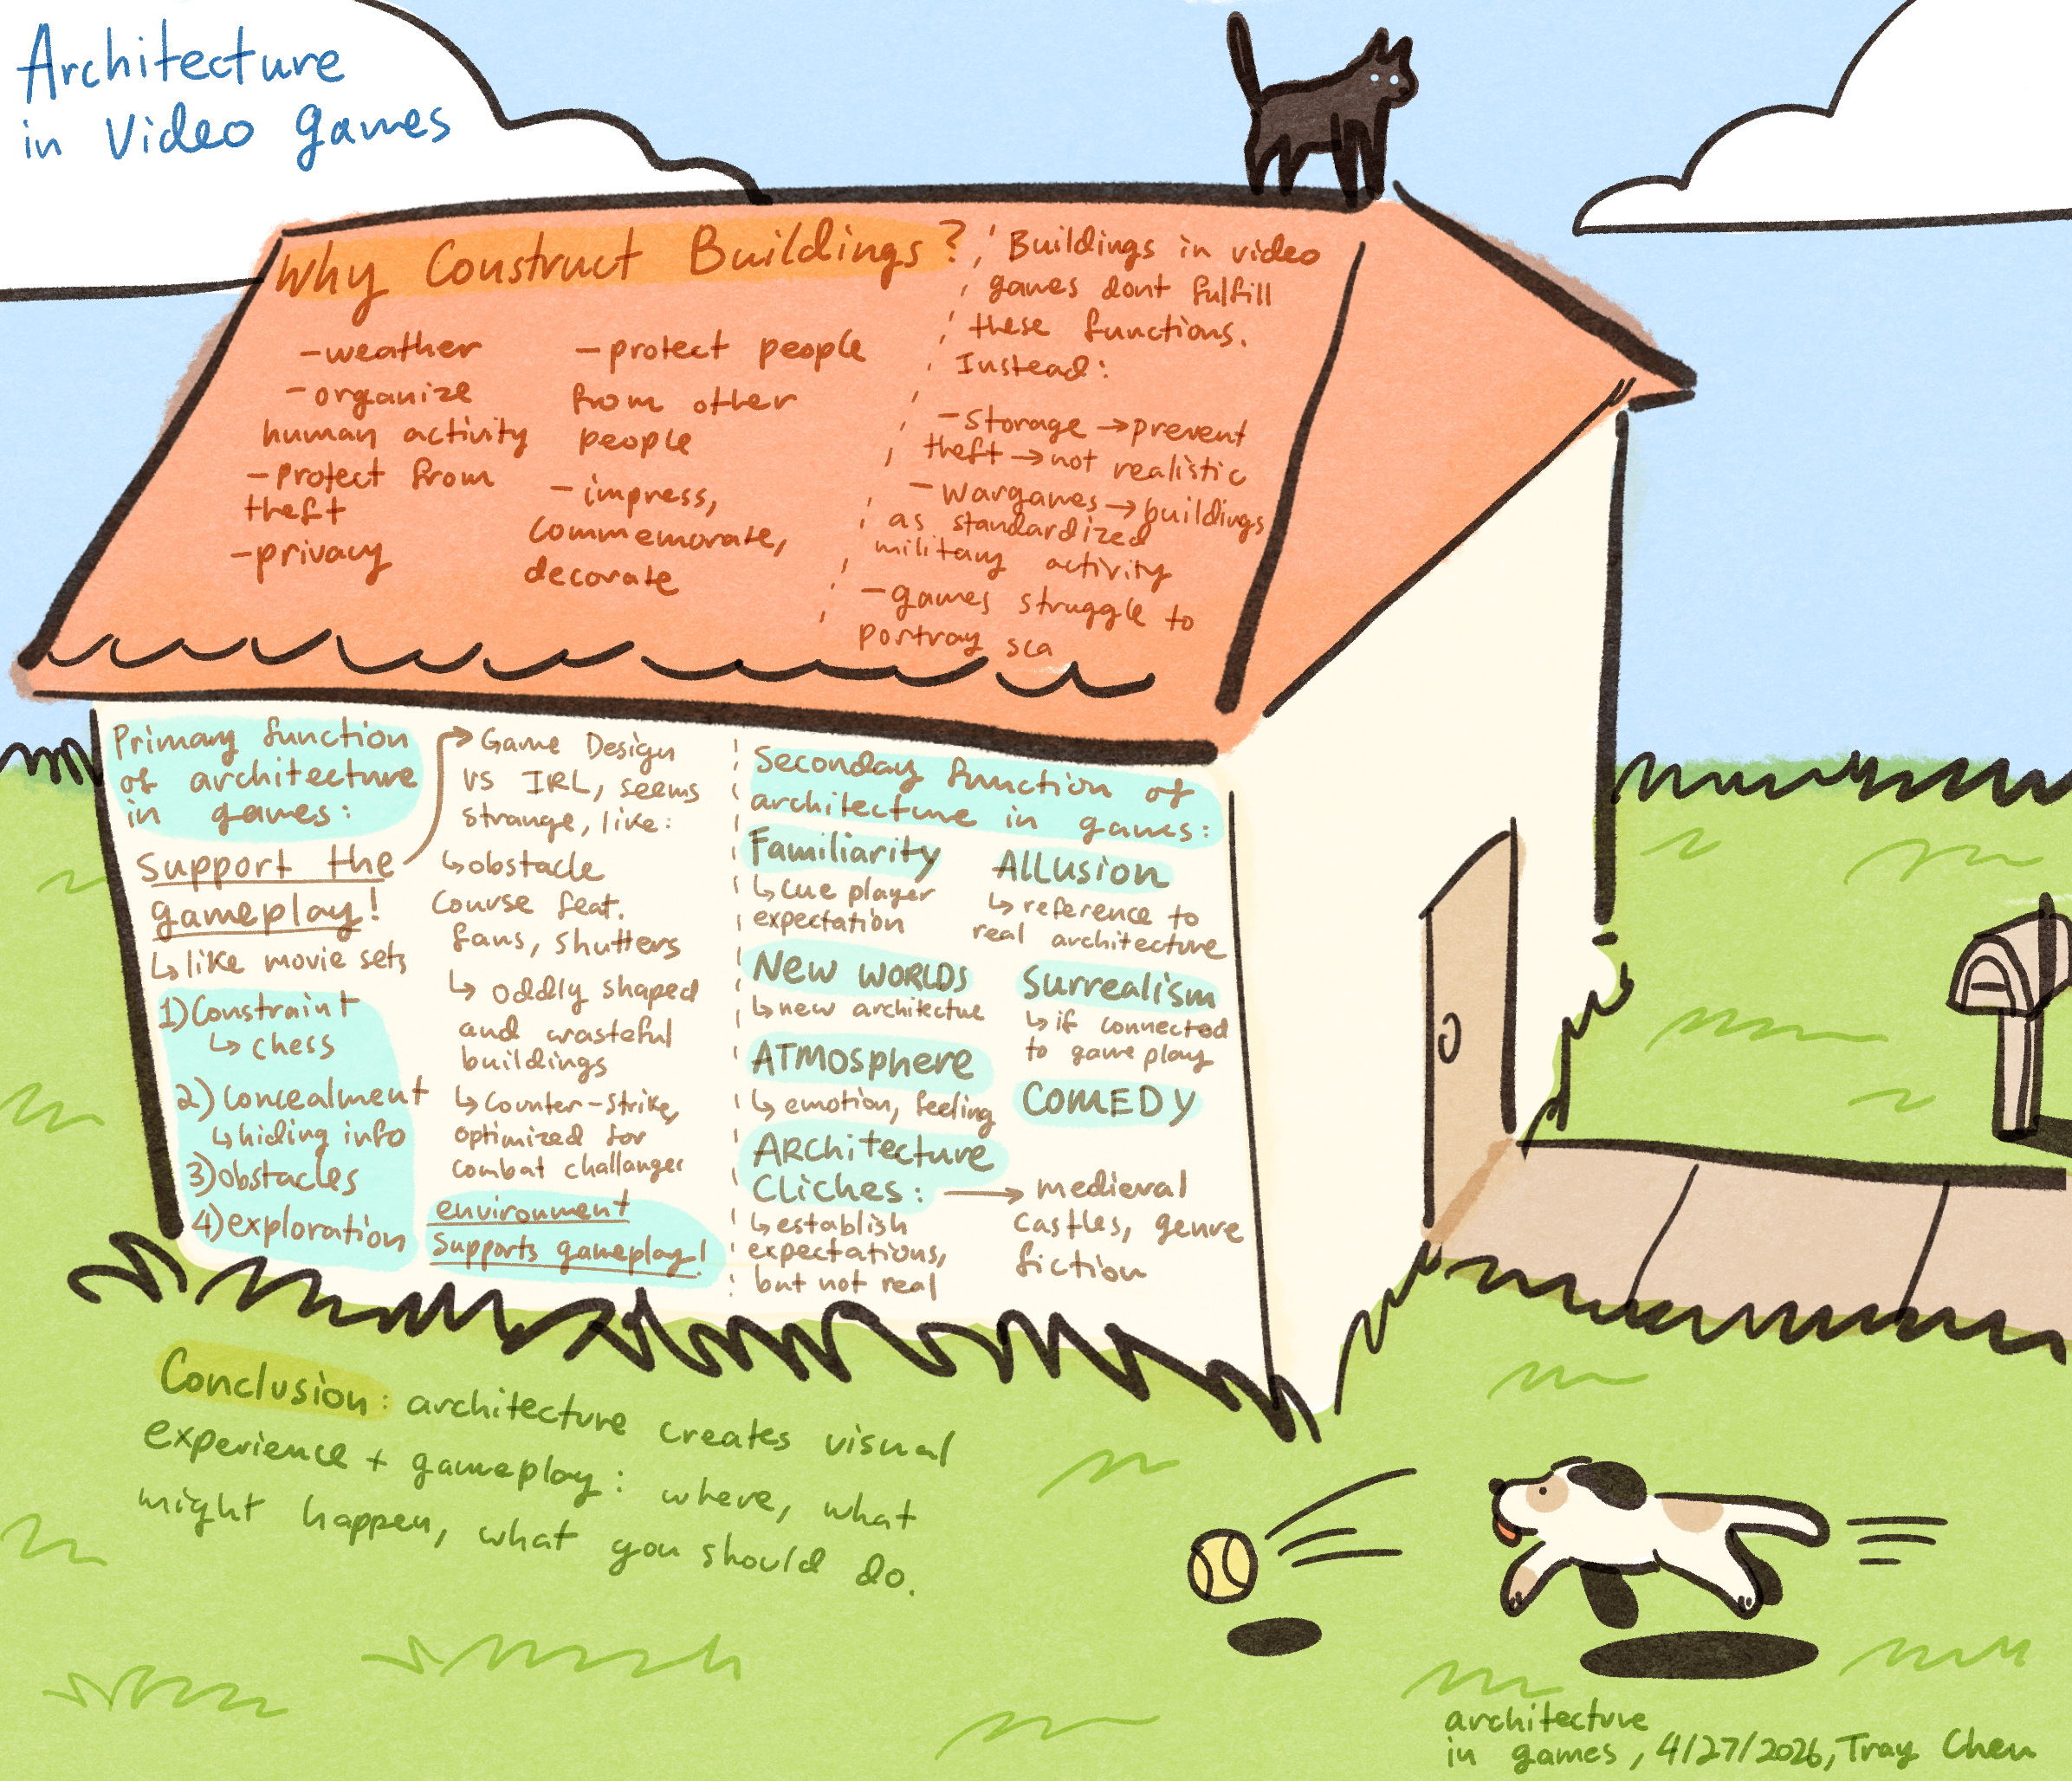 Architecture
in Video games
Why Construct Buildings?
-weather
-organize
human activity
-protect from
theft
-privacy
-protect people
from other
people
-impress,
commemorate,
decorate
Buildings in video
games dont fulfill
these functions.
Instead:
-storage →prevent
theft →not realistic
-wargames→buildings
as standardized
military activity
-games struggle to
portray sca
Primary function
of architecture
in games:
support the
gameplay!
↳like movie sets
1)Constraint
↳ chess
2)concealment
↳hiding info
3)obstacles
4)exploration
→Game Design
vs IRL, seems
strange, like:
↳obstacle
course feat.
fans, shutters
↳ oddly shaped
and wasteful
buildings
↳counter-strike,
optimized for
combat challanges
environment
supports gameplay!
Seconday function of
architecture in games:
Familiarity
↳cue player
expectation
New WORLDS
↳new architectue
ATMosphere
↳emotion, feeling
ARChitecture
Cliches: → medieval
castles, genre
fiction
↳establish
expectations,
but not real
Allusion
↳reference to
real architecture
Surrealism
↳if connected
to game play
COMEDY
Conclusion: architecture creates visual
experience + gameplay: where, what
might happen, what you should do.
architecture
in games, 4/27/2026, Tray Chen